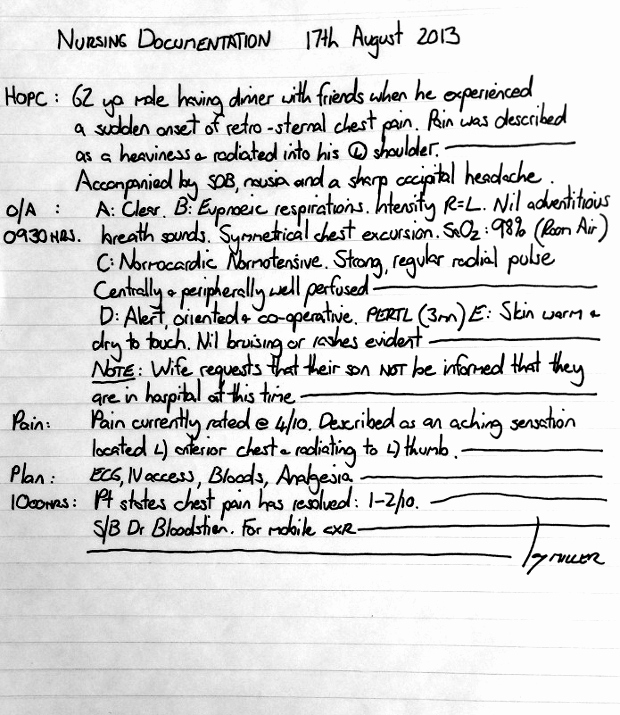 NURSING DOCUMENTATION 17th August 2013
HOPC : 62 yo male having dinner with friends when he experienced
a sudden onset of retro-sternal chest pain. Pain was described
as a heaviness & radiated into his Ⓛ shoulder.
Accompanied by SOB, nausia and a sharp occipital headache.
O/A : A: Clear. B: Eupnoeic respirations. Intensity R=L. Nil adventitious
0930HRS. breath sounds. Symmetrical chest excursion. SaO2: 98% (Room Air)
C: Normocardic Normotensive. Strong, regular radial pulse
Centrally & peripherally well perfused
D: Alert, oriented & co-operative. PERTL (3mm) E: Skin warm &
dry to touch. Nil bruising or rashes evident
NOTE: Wife requests that their son NOT be informed that they
are in hospital at this time
Pain: Pain currently rated @ 4/10. Described as an aching sensation
located L) anterior chest & radiating to L) thumb.
Plan: ECG, IV access, Bloods, Analgesia
1000HRS: Pt states chest pain has resolved: 1-2/10.
S/B Dr Bloodstien. For mobile CXR
MILLER